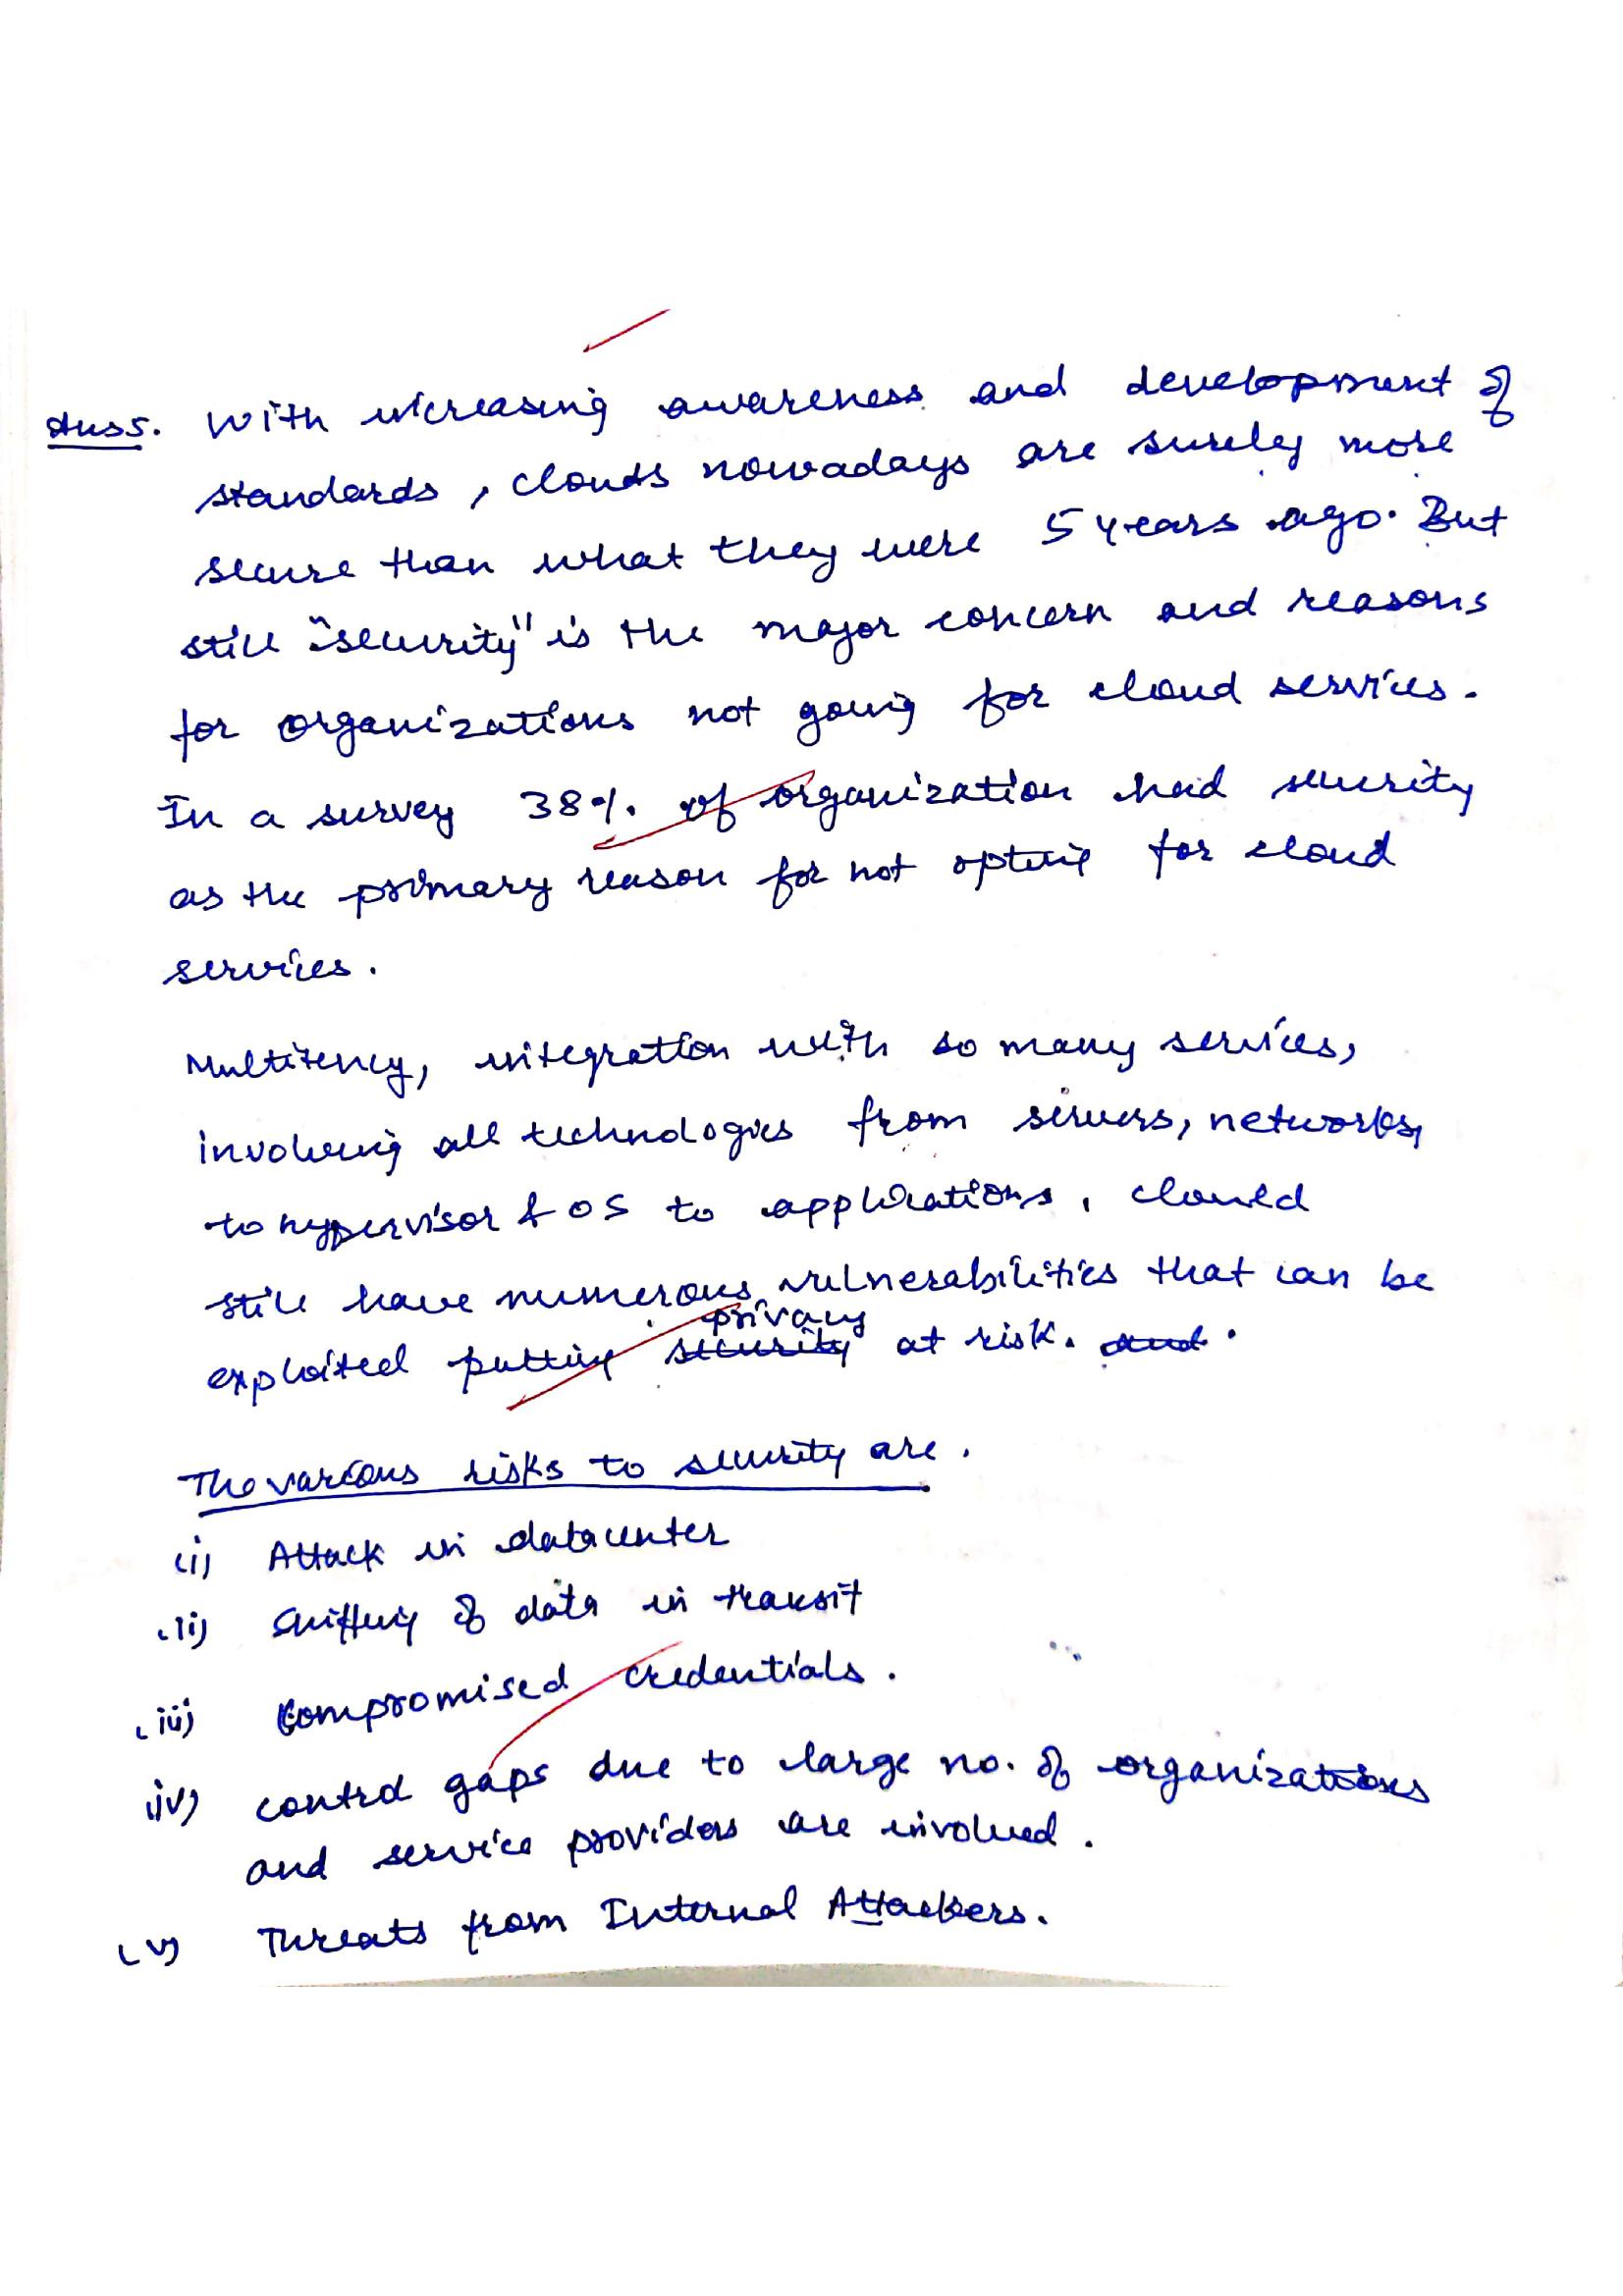 Ans5. With increasing awareness and development of
standards, clouds nowadays are surely more
secure than what they were 5 years ago. But
still "security" is the major concern and reasons
for organizations not going for cloud services.
In a survey 38% of organization had security
as the primary reason for not opting for cloud
services.
Multitency, integration with so many services,
involving all technologies from servers, networks,
to hypervisor & OS to applications, clould
still have numerous vulnerabilities that can be
privacy
exploited putting security at risk. and.
The various risks to security are.
(i) Attack in datacenter
(ii) Sniffing of data in transit
(iii) Compromised credentials.
(iv) control gaps due to large no. of organizations
and service providers are involved.
(v) Threats from Internal Attackers.